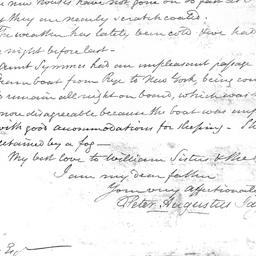 new houses have not gone on so fast as
they are nearly scratch coated.
The weather has lately been cold. Ive had
night before last -
Aunt Symmes had an unpleasant passage
boat from Rye to New York, being
remain all night on board, which was
more disagreeable because the boat was
with good accommodations for sleeping -
detained by a fog -
My best love to William Sisters &
I am my dear father
Your very affectionate
Peter Augustus
Esq